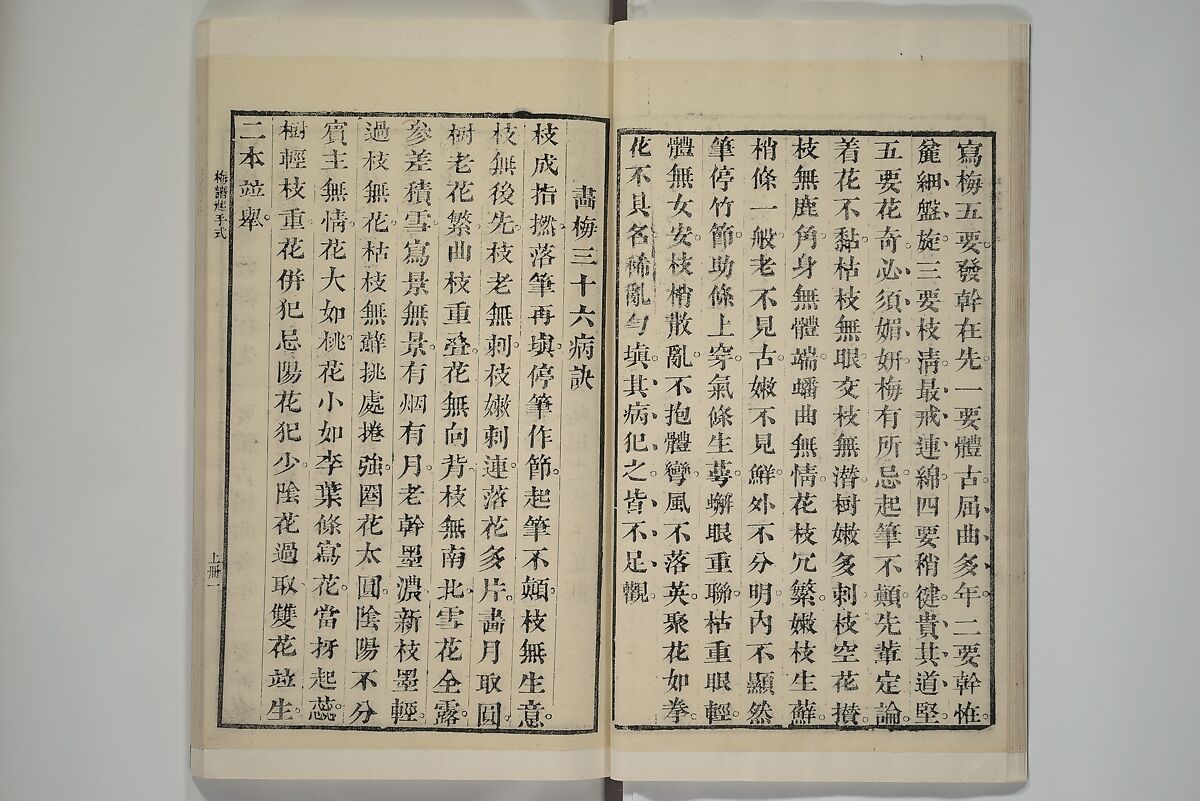 寫梅五要。發幹在先。一要體古。屈曲多年。二要幹恠。
麄細盤旋。三要枝清。最戒連綿。四要稍健。貴其道堅。
五要花奇。必須媚妍。梅有所忌。起筆不顛。先輩定論。
着花不黏。枯枝無眼。交枝無潜。樹嫩多刺。枝空花攅。
枝無鹿角。身無體端。蟠曲無情。花枝冗繁。嫩枝生蘚。
梢條一般。老不見古。嫩不見鮮。外不分明。內不顯然。
筆停竹節。助條上穿。氣條生萼。蠏眼重聯。枯重眼輕。
體無女安。枝梢散亂。不抱體彎。風不落英。聚花如拳。
花不具名。稀亂勻塡。其病犯之。皆不足觀。
畵梅三十六病訣
枝成指撚。落筆再塡。停筆作節。起筆不顛。枝無生意。
枝無後先。枝老無刺。枝嫩刺連。落花多片。畵月取圓。
樹老花繁。曲枝重疊。花無向背。枝無南北。雪花全露。
參差積雪。寫景無景。有烟有月。老幹墨濃。新枝墨輕。
過枝無花。枯枝無蘚。挑處捲強。圈花太圓。陰陽不分。
賓主無情。花大如桃。花小如李。葉條寫花。當枒起蕊。
樹輕枝重。花併犯忌。陽花犯少。陰花過取。雙花竝生。
二本竝舉。
梅譜起手式
上冊一